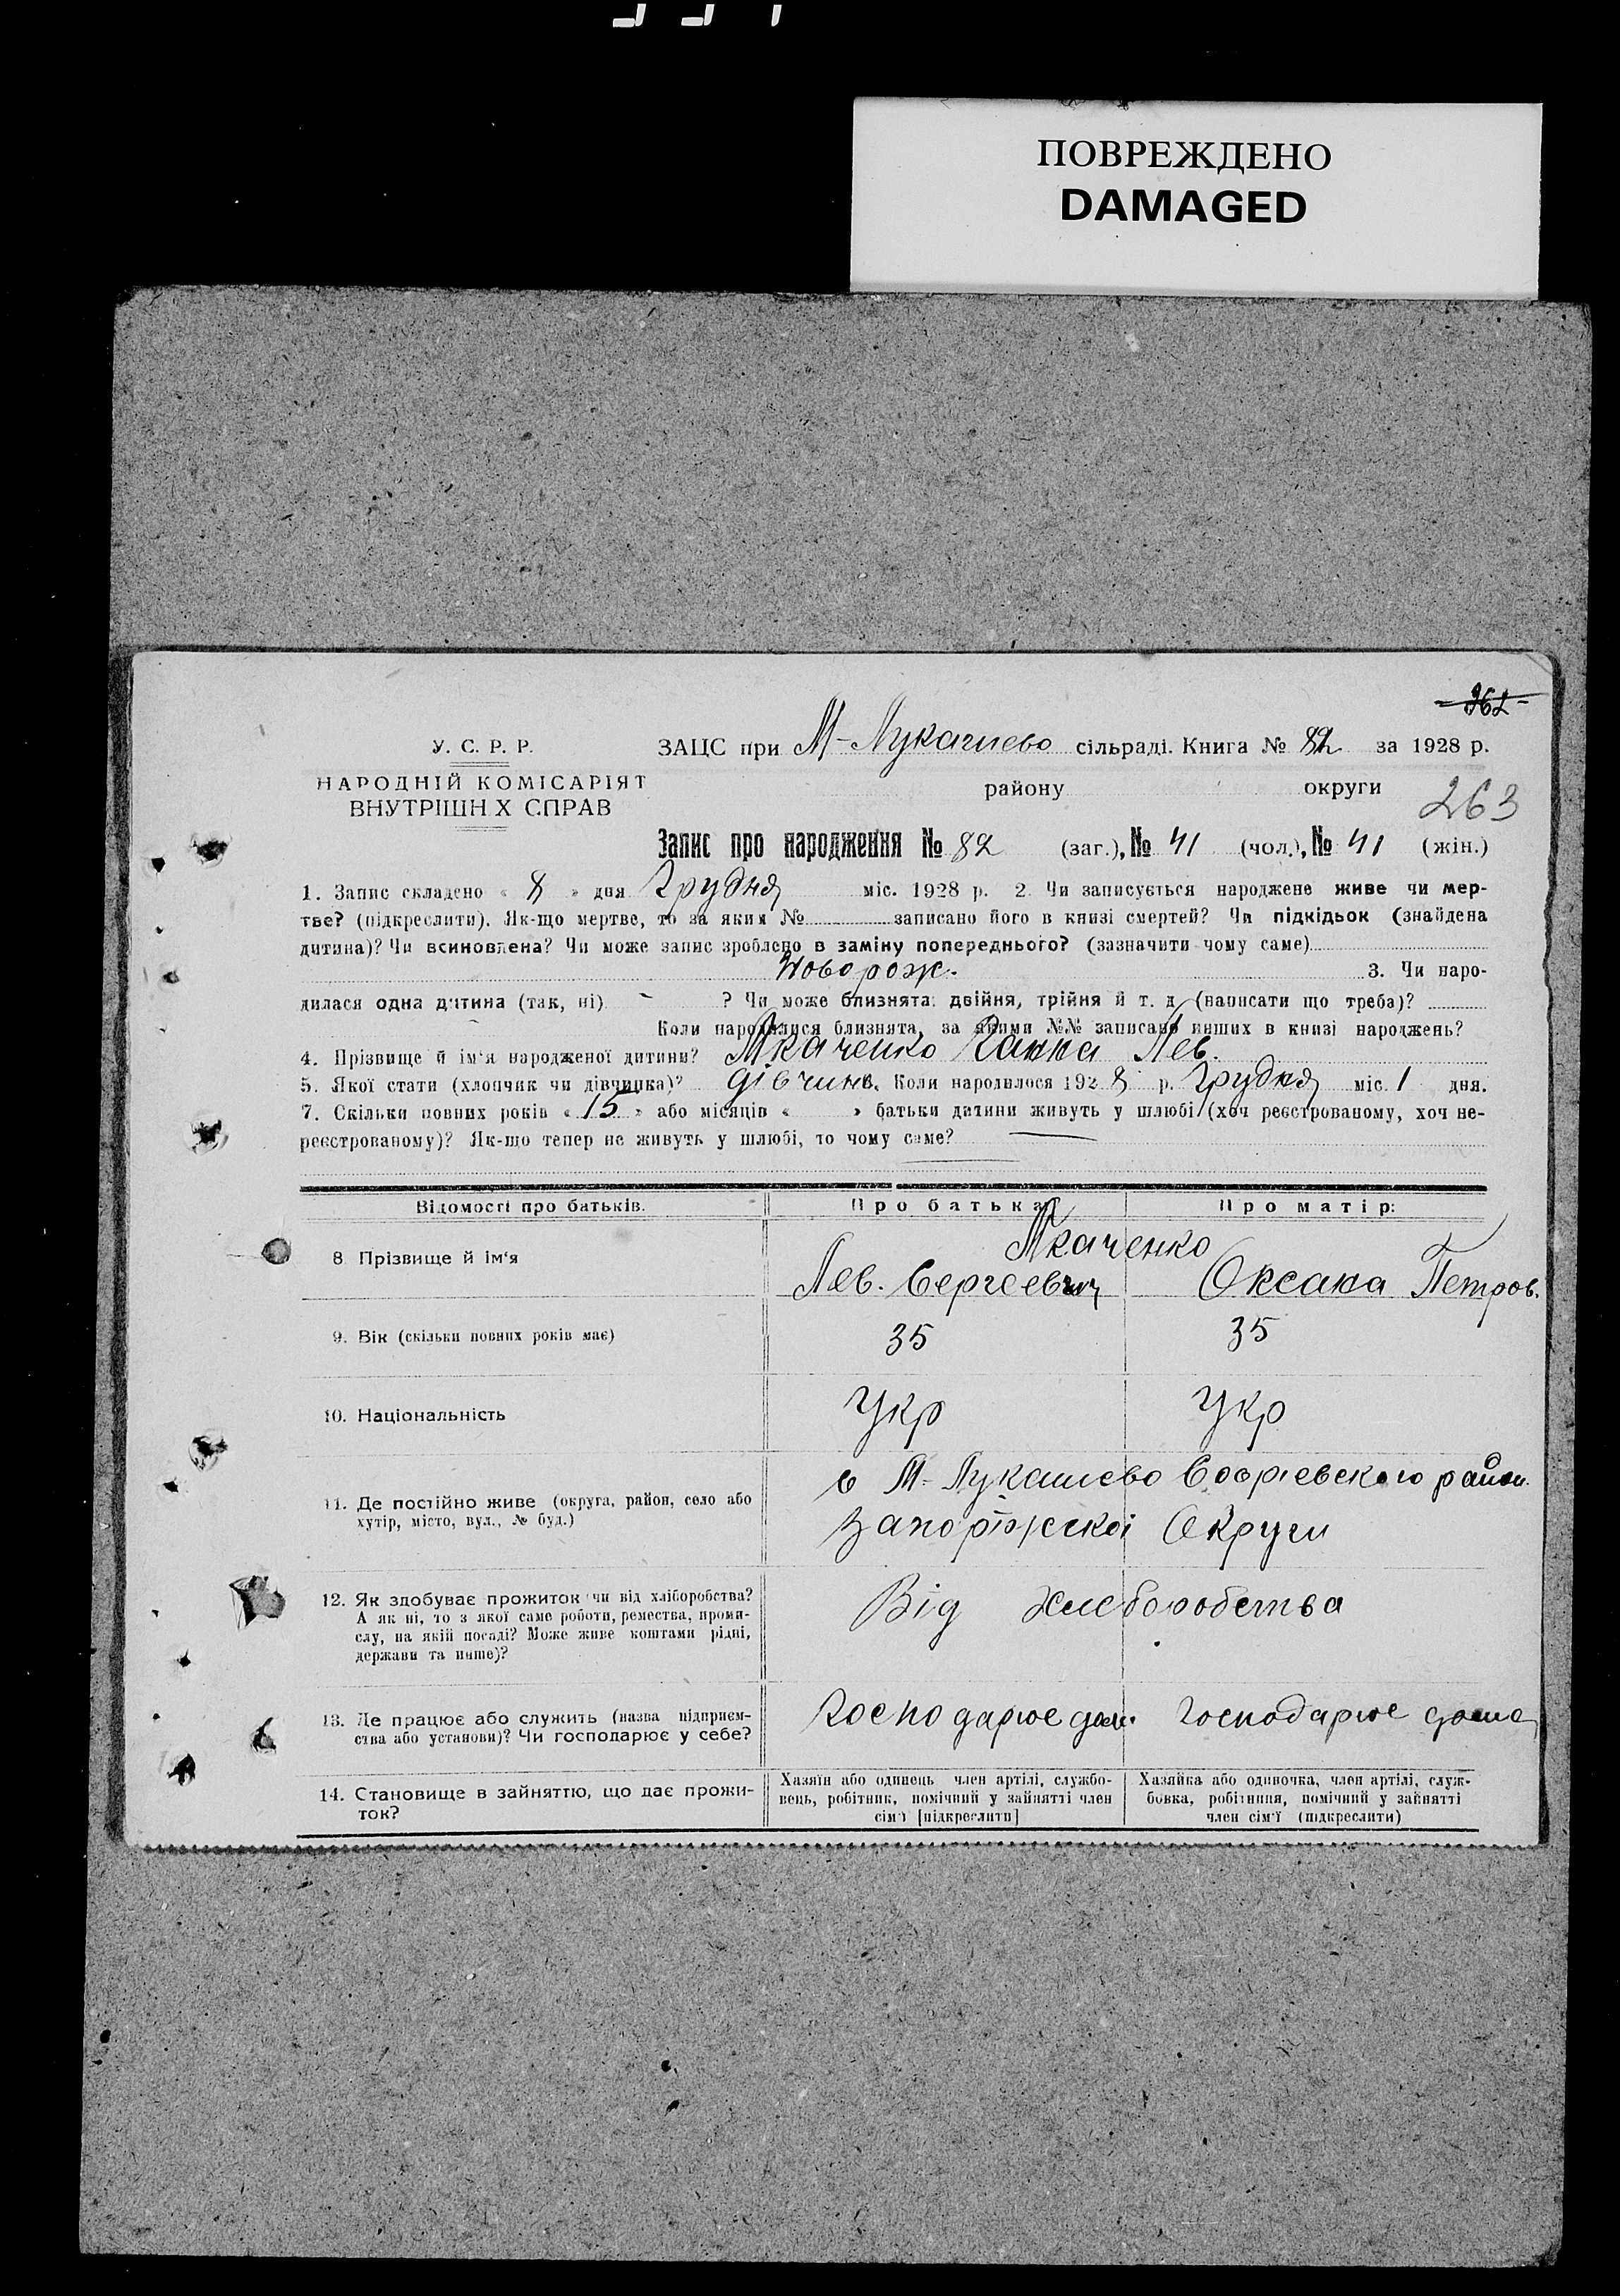 ПОВРЕЖДЕНО
DAMAGED
362
У. С. Р. Р.
НАРОДНІЙ КОМІСАРІЯТ
ВНУТРІШН Х СПРАВ
ЗАЦС при М-Лукашево сільраді. Книга № 82 за 1928 р.
району округи
263
Запис про народження № 82 (заг.), № 41 (чол.), № 41 (жін.)
1. Запис складено « 8 » дня Грудня міс. 1928 р. 2 Чи записується народжене живе чи мер-
тве? (підкреслити). Як-що мертве, то за яким № записано його в книзі смертей? Чи підкідьок (знайдена
дитина)? Чи всиновлена? Чи може запис зроблено в заміну попереднього? (зазначити чому саме)
Новорож. 3. Чи наро-
дилася одна дитина (так, ні) - ? Чи може близнята: двійня, трійня й т. д (написати що треба)?
Коли народилися близнята, за якими №№ записано инших в книзі народжень?
4. Прізвище й ім'я народженої дитини? Ткаченко Ганна Лев.
5. Якої стати (хлопчик чи дівчинка)? дівчина. Коли народилося 1928 р. Грудня міс. 1 дня.
7. Скільки повних років « 15 » або місяців « » батьки дитини живуть у шлюбі (хоч реєстрованому, хоч не-
реєстрованому)? Як-що тепер не живуть у шлюбі, то чому саме? —
Відомості про батьків. Про батька Про матір:
Ткаченко
8 Прізвище й ім'я Лев. Сергеевич Оксана Петров.
9. Вік (скільки повних років має) 35 35
10. Національність Укр Укр
11. Де постійно живе (округа, район, село або
хутір, місто, вул., № буд.)
с М-Лукашево Софіевского район.
Запоріжскої Округи
12. Як здобуває прожиток (чи від хліборобства?
А як ні, то з якої саме роботи, ремества, проми-
слу, на якій посаді? Може живе коштами рідні,
держави та инше)?
Від хлеборобства
13. Де працює або служить (назва підприєм-
ства або установи)? Чи господарює у себе?
Господарює дом. Господарює дома
14. Становище в зайняттю, що дає прожи-
ток?
Хазяїн або одинець член артілі, службо-
вець, робітник, помічний у зайнятті член
сім'ї [підкреслити]
Хазяйка або одиночка, член артілі, служ-
бовка, робітниця, помічний у зайнятті
член сім'ї (підкреслити)